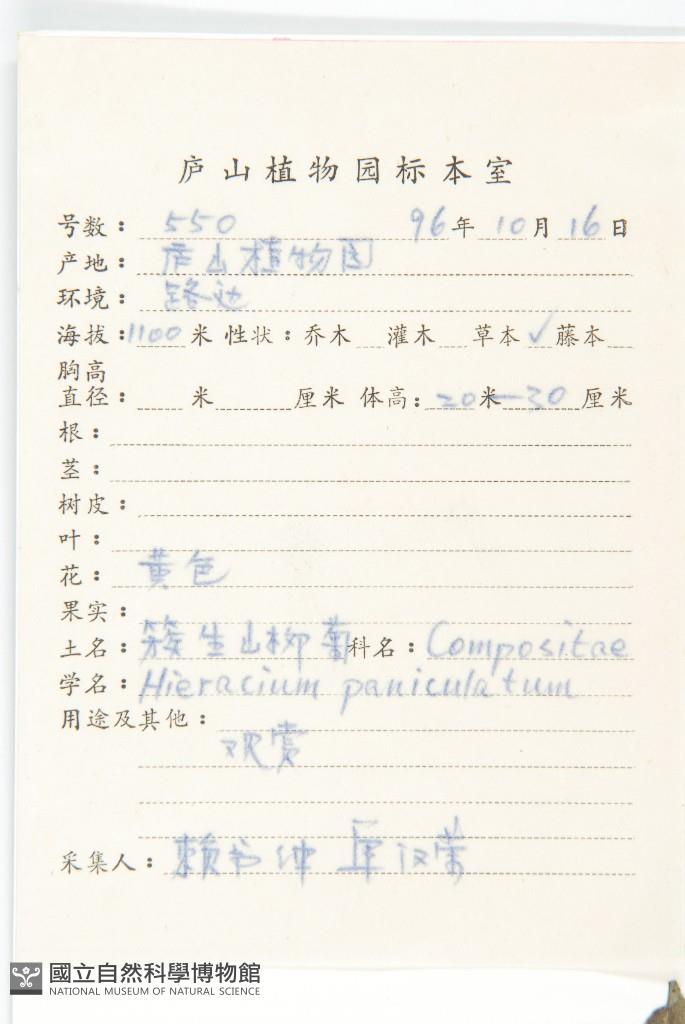 庐山植物园标本室
号数：550 96年10月16日
产地：庐山植物园
环境：路边
海拔：1100米 性状：乔木 灌木 草本✓藤本
胸高
直径： 米 厘米 体高：20米—30厘米
根：
茎：
树皮：
叶：
花：黄色
果实：
土名：簇生山柳菊 科名：Compositae
学名：Hieracium paniculatum
用途及其他：
观赏
采集人：赖书绅 单汉荣
國立自然科學博物館
NATIONAL MUSEUM OF NATURAL SCIENCE